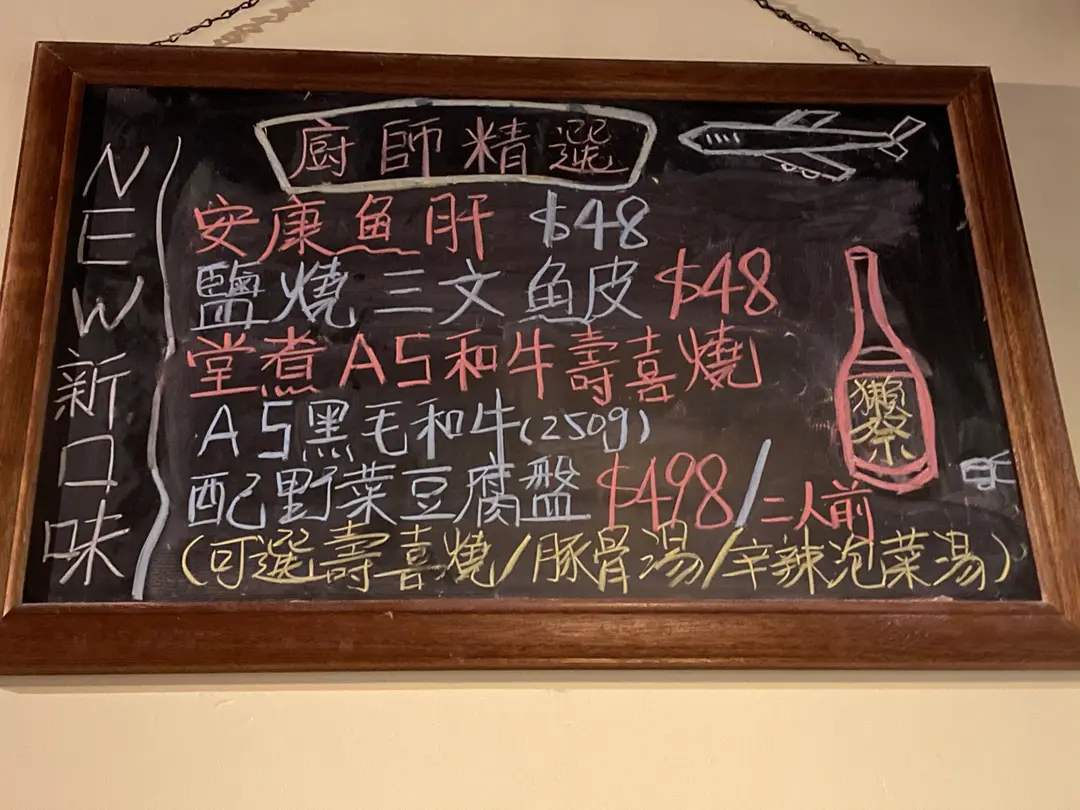 廚師精選
NEW新口味
安康魚肝 $48
鹽燒三文魚皮 $48
堂煮A5和牛壽喜燒
A5黑毛和牛(250g)
配野菜豆腐盤 $498/二人前
(可選壽喜燒/豚骨湯/辛辣泡菜湯)
獺祭